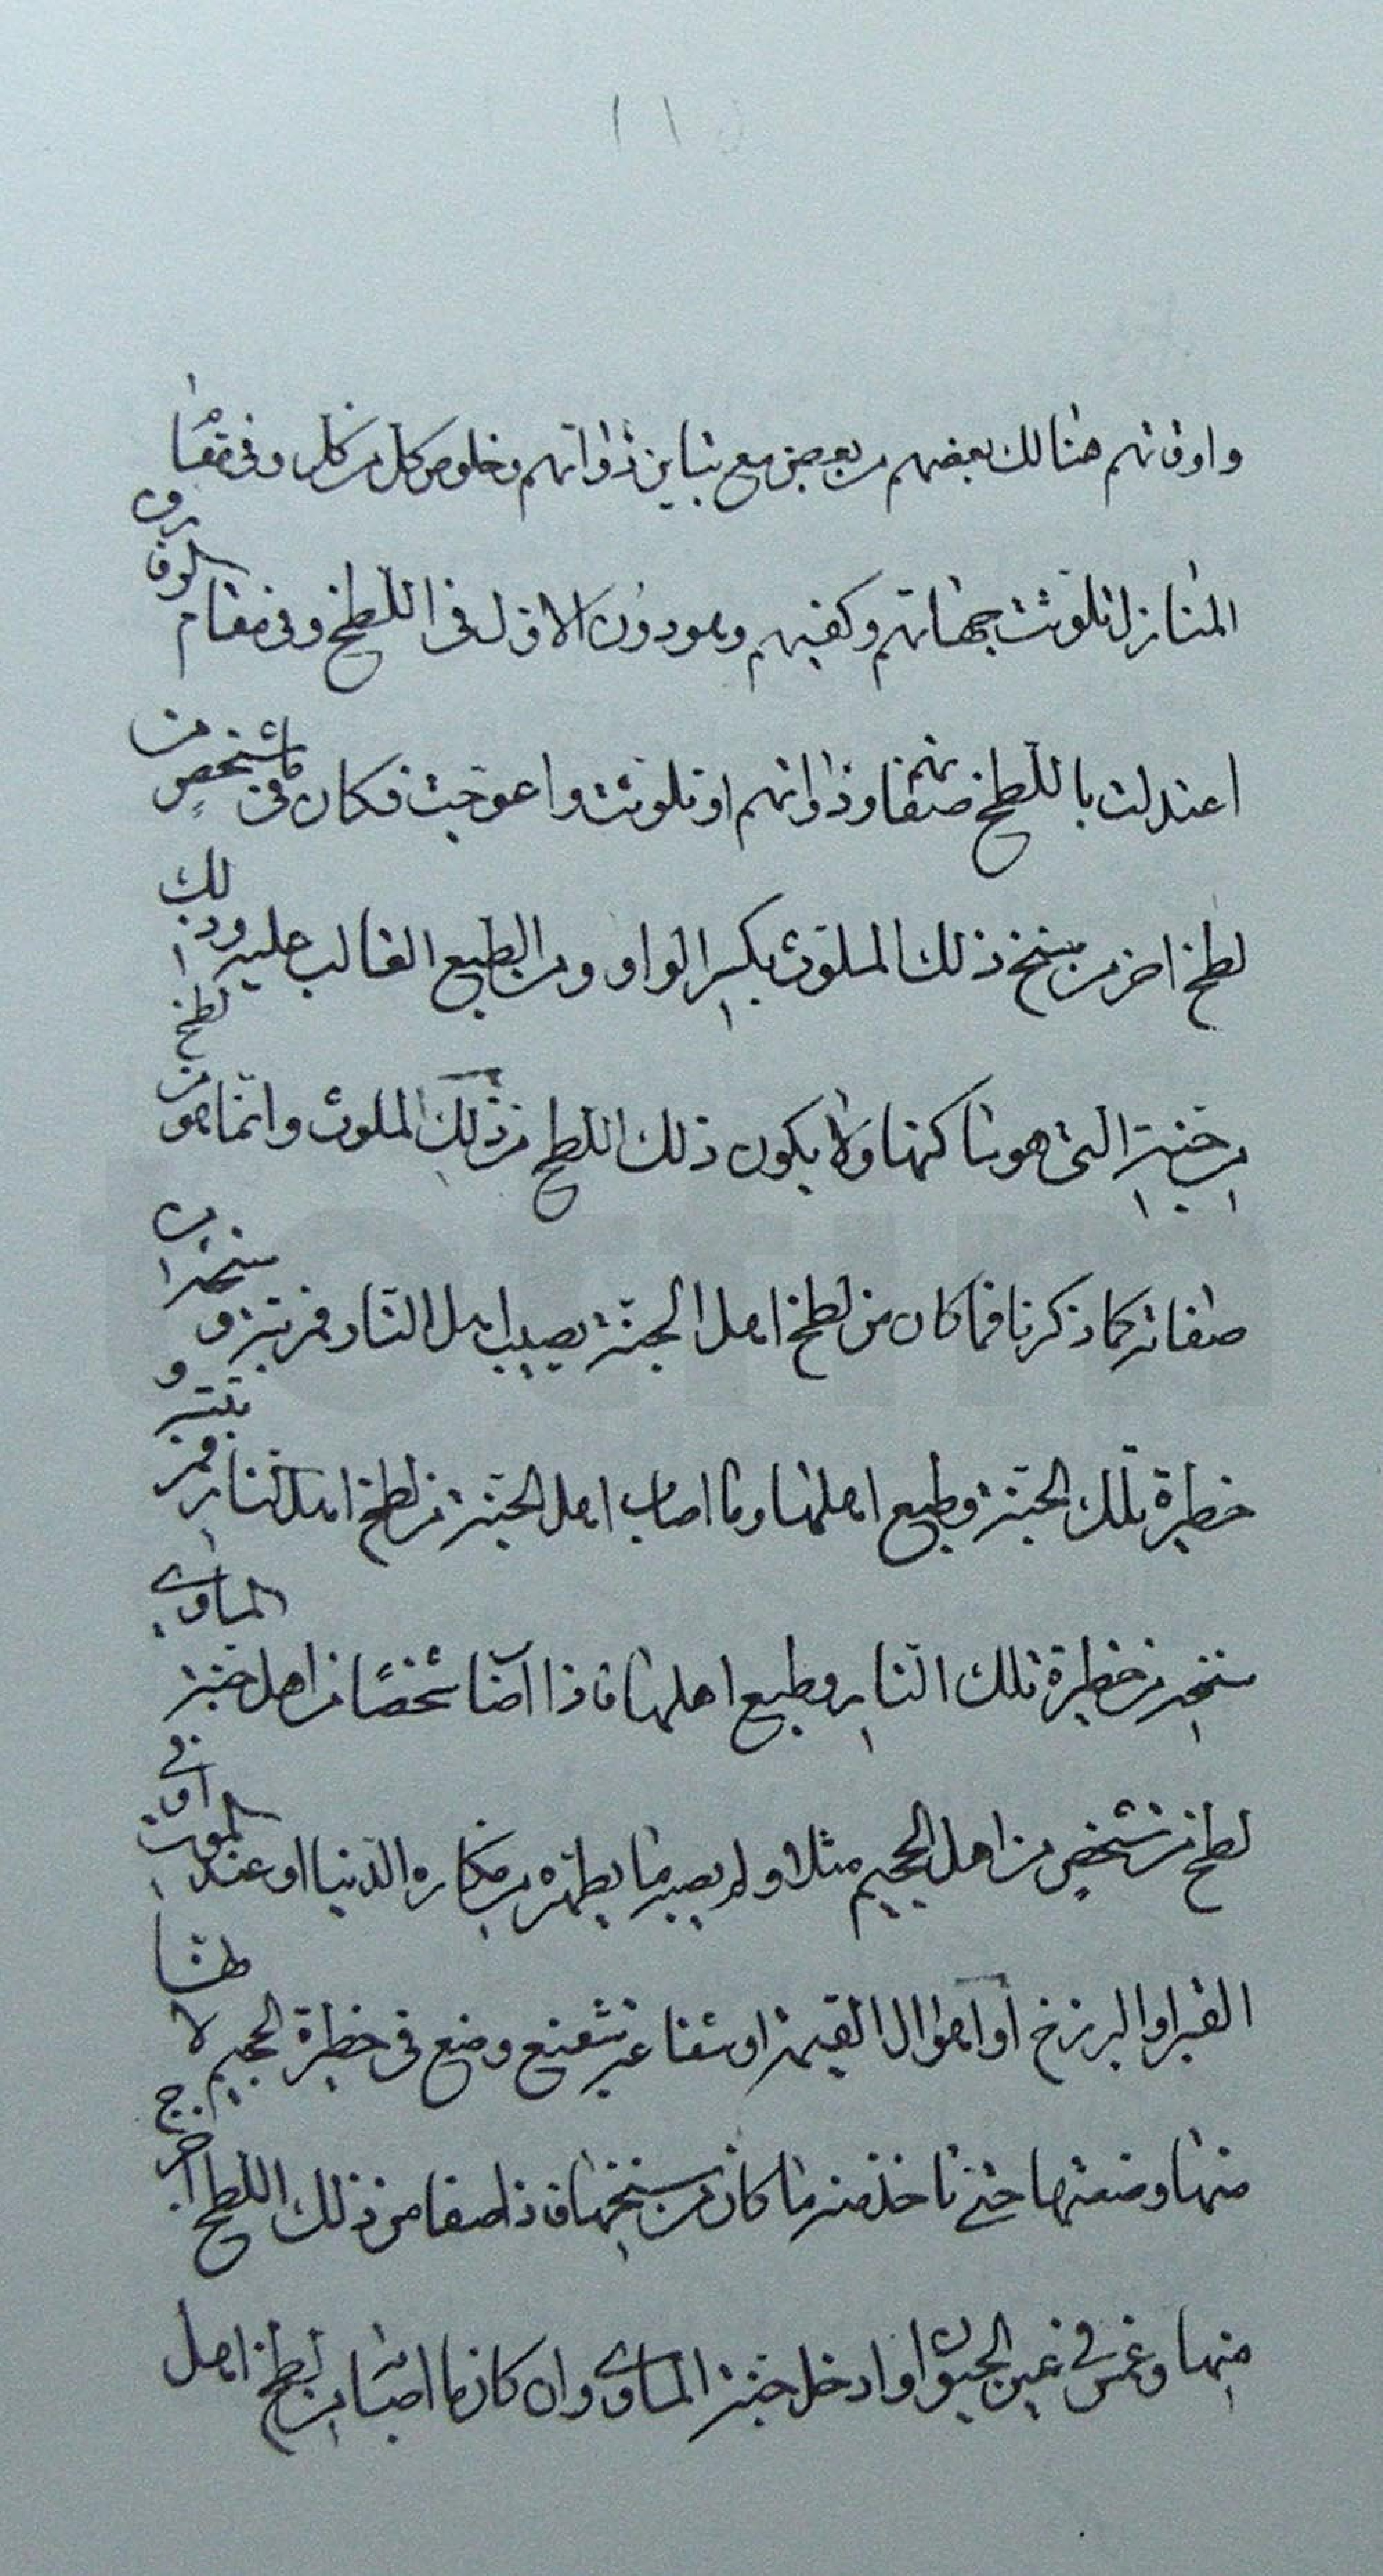 واوقاتهم هنالك بعضهم من بعض مع تباين ذواتهم وخلوص كل من كل وفي مقام
المنازل تلوثت جهاتهم وكفيهم ويعودون الاول في اللطخ وفي مقام
اعتدلت باللطخ صفاتهم وذواتهم او تلوثت واعوجت فكان ما في شخص من
لطخ اخر من سنخ ذلك الملوث بكسر الواو ومن الطبع الغالب عليه وذلك
من جنبته التي هو ساكنها ولا يكون ذلك اللطخ من ذلك الملوث وانما هو من لطخ
صفاته كما ذكرنا فما كان من لطخ اهل الجنة يصيب اهل النار فمن و سنخه من
حظيرة تلك الجنة وطبع اهلها وما اصاب اهل الجنة من لطخ اهل النار فمن و
سنخه من حظيرة تلك النار وطبع اهلها فاذا اصاب شخصا من اهل جنة الماوى
لطخ من شخص من اهل الجحيم مثلا ولم يصبه ما يطهره من مكاره الدنيا او عند الموت او في
القبر او البرزخ او اهوال القيمة او شفاعة شفيع وضع في حظيرة الجحيم لا
منها وضعتها حتى تاخذ منه ما كان من سنخها فاذا صفا من ذلك اللطخ اخرج
منها وغمس في عين الحيوان وادخل جنة الماوى وان كان ما اصاب من لطخ اهل